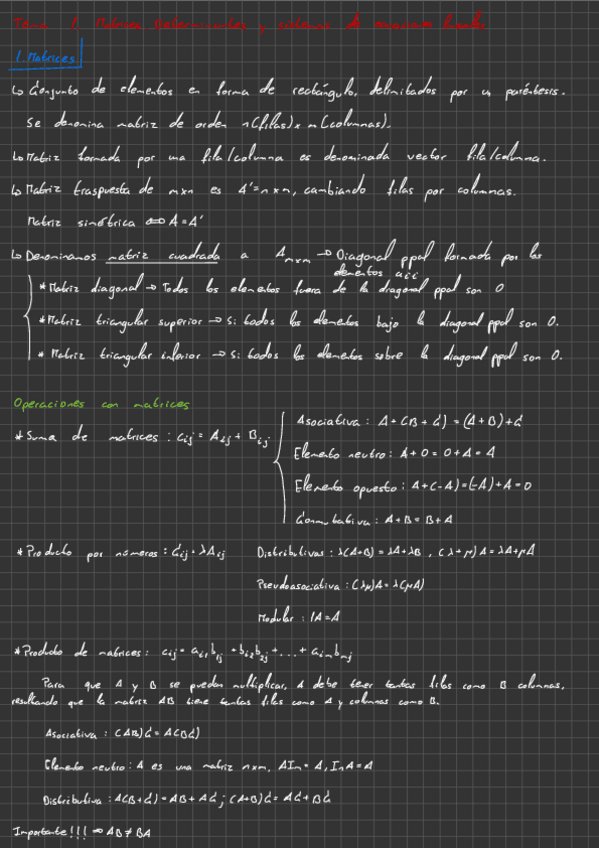 Tema 1. Matrices, Determinantes y sistemas de ecuaciones lineales
1. Matrices
↳ Conjunto de elementos en forma de rectángulo, delimitados por un paréntesis.
Se denomina matriz de orden n(filas) x m(columnas).
↳ Matriz formada por una fila/columna es denominada vector fila/columna.
↳ Matriz traspuesta de m×n es A'=n×m, cambiando filas por columnas.
Matriz simétrica ⟺ A=A'
↳ Denominamos matriz cuadrada a A_{m×m} → Diagonal ppal formada por los
elementos a_{ii}
* Matriz diagonal → Todos los elementos fuera de la diagonal ppal son 0
* Matriz triangular superior → Si todos los elementos bajo la diagonal ppal son 0.
* Matriz triangular inferior → Si todos los elementos sobre la diagonal ppal son 0.
Operaciones con matrices
* Suma de matrices : c_{ij} = A_{ij} + B_{ij}
Asociativa : A+(B+C) = (A+B)+C
Elemento neutro : A+0=0+A=A
Elemento opuesto : A+(-A)=(-A)+A=0
Conmutativa : A+B=B+A
* Producto por números : C_{ij} = λA_{ij} Distributivas : λ(A+B)=λA+λB , (λ+μ)A=λA+μA
Pseudoasociativa : (λμ)A=λ(μA)
Modular : 1A=A
* Producto de matrices : c_{ij} = a_{i1}b_{1j} + b_{i2}b_{2j} + ... + a_{im}b_{mj}
Para que A y B se puedan multiplicar, A debe tener tantas filas como B columnas,
resultando que la matriz AB tiene tantas filas como A y columnas como B.
Asociativa : (AB)C=A(BC)
Elemento neutro : A es una matriz n×m, AIm=A, InA=A
Distributiva : A(B+C)=AB+AC ; (A+B)C=AC+BC
Importante!!! → AB≠BA